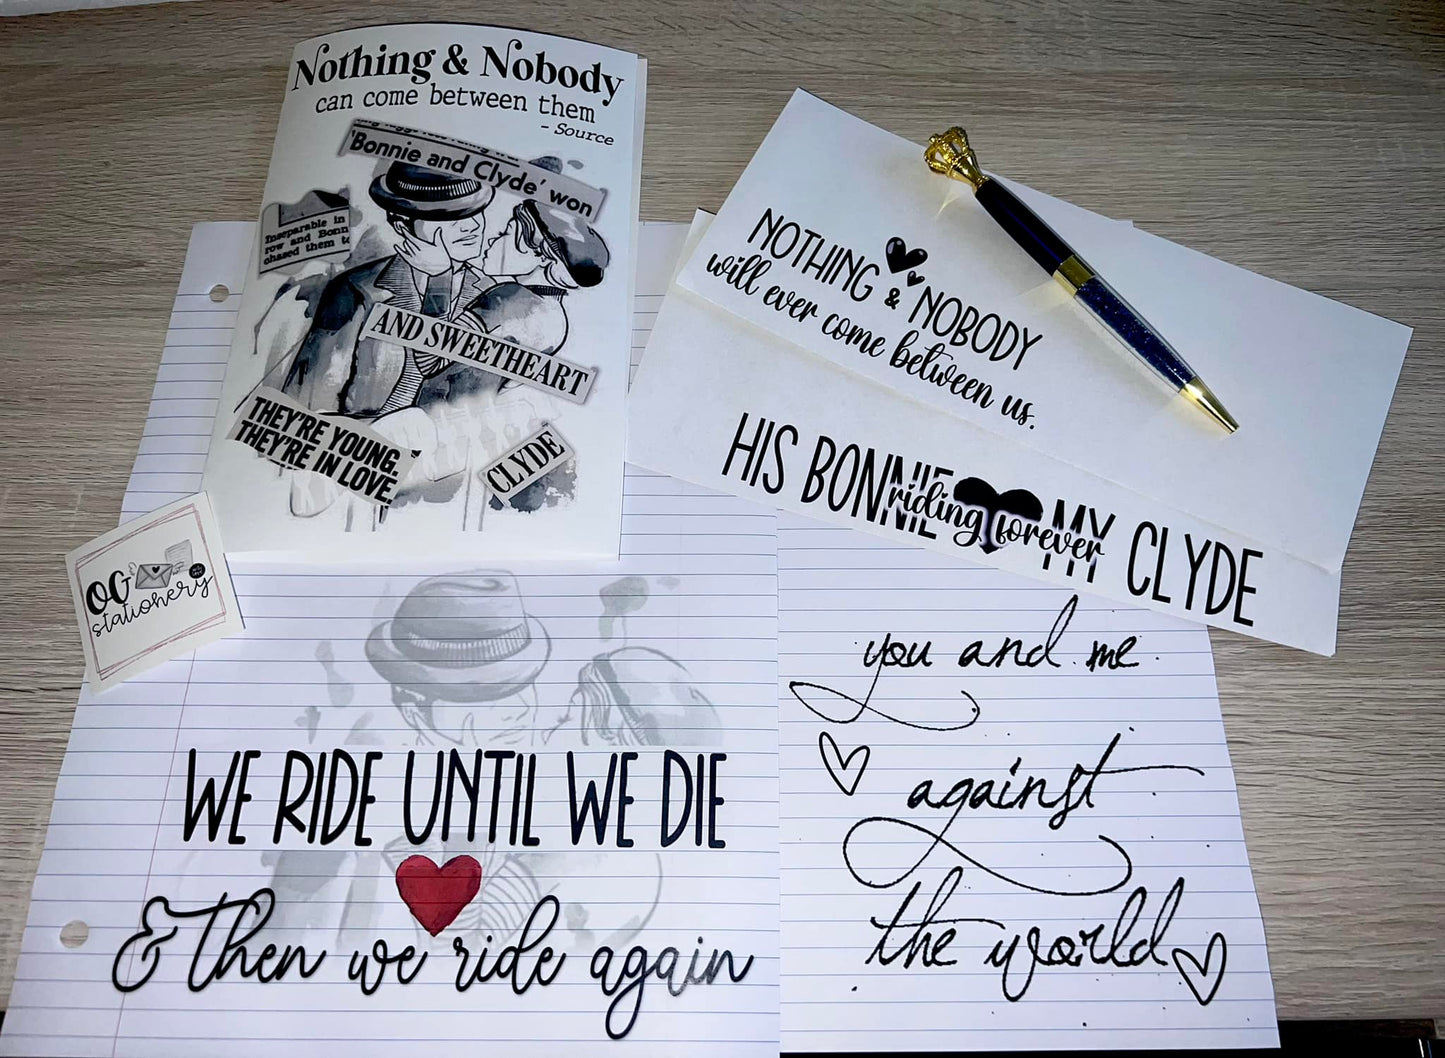 Nothing & Nobody
can come between them
- Source
'Bonnie and Clyde' won
Inseparable in
row and Bonn
chased them to
AND SWEETHEART
THEY'RE YOUNG.
THEY'RE IN LOVE.
CLYDE
NOTHING & NOBODY
will ever come between us.
HIS BONNIE MY CLYDE
riding forever
OG
stationery
WE RIDE UNTIL WE DIE
& then we ride again
you and me
against
the world